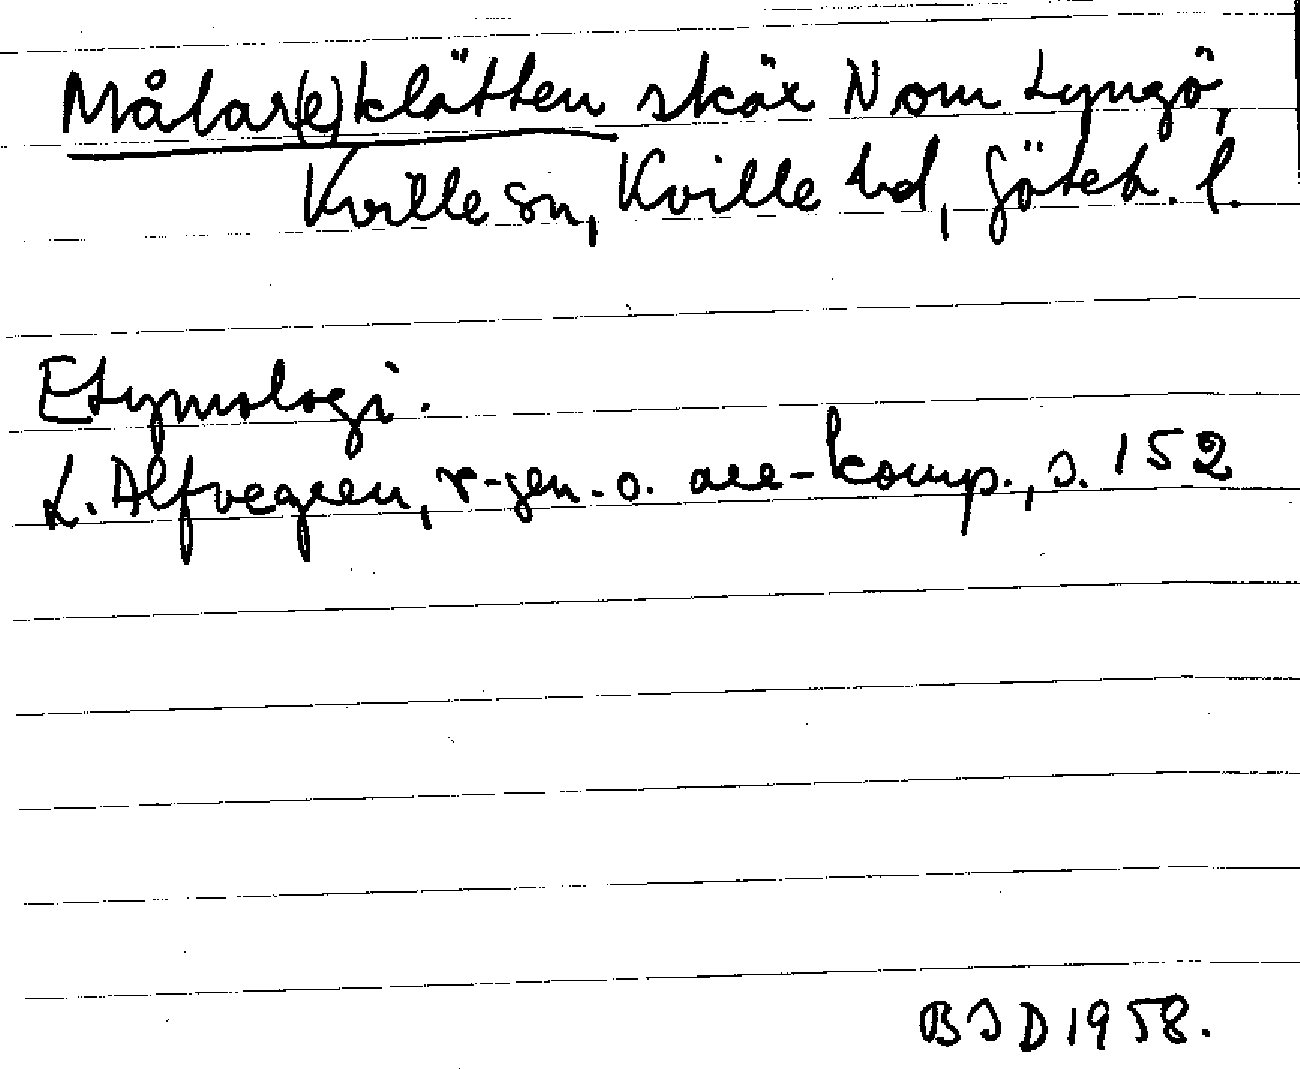 Målar(e)klätten skär N om Lyngö,
Kville sn, Kville hd, Göteb. l.
Etymologi.
L. Alfvegren, r-gen. o. are-komp., s. 152
BSD 1958.